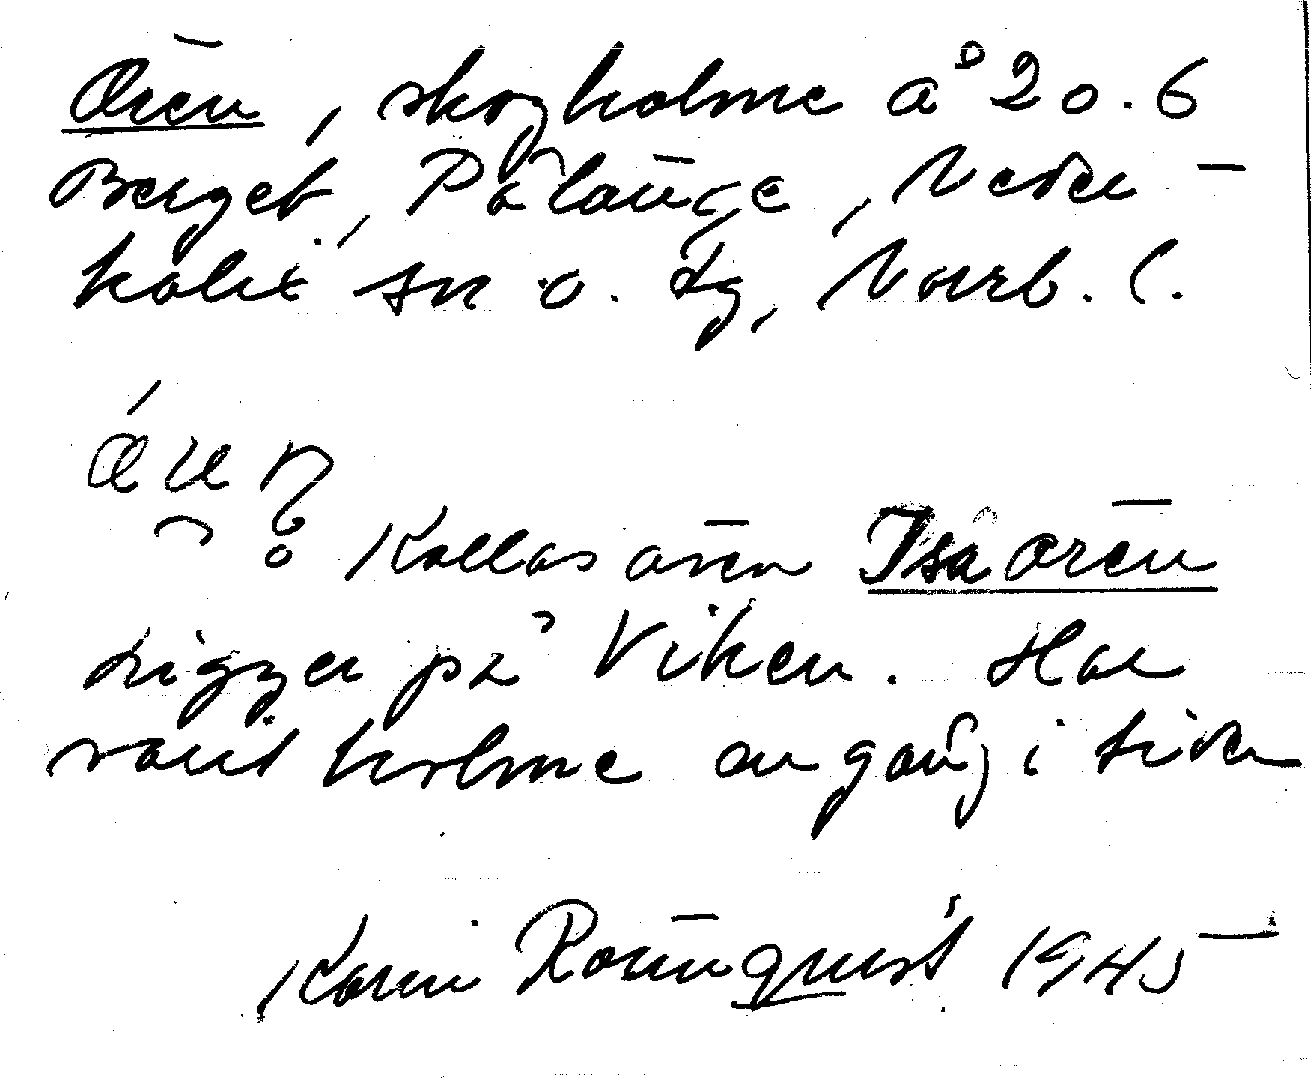 Ören, skogholme å 20.6
Berget, Pålänge, Neder-
kalix sn o. tg, Norrb. l.
Kallas ören Isaören
Ligger på Viken. Har
varit holme en gång i tiden
Karin Rönnqvist 1945